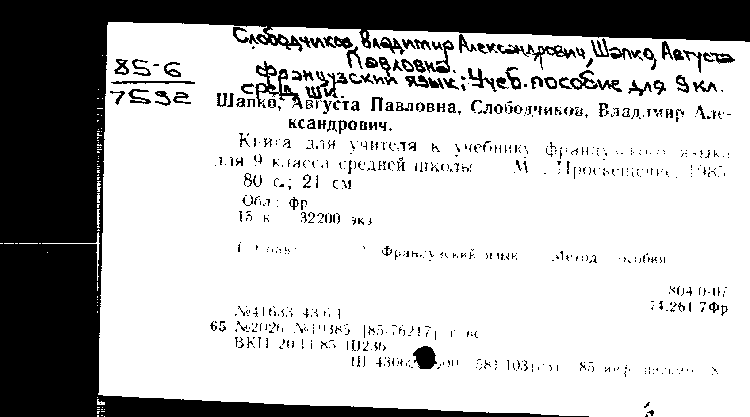 Слободчиков, Владимир Александрович, Шапко, Августа
Павловна.
85-6
французский язык; Учеб. пособие для 9 кл.
7592
сред. шк.
Шапко, Августа Павловна, Слободчиков, Владимир Але-
ксандрович.
Книга для учителя к учебнику французского языка
для 9 класса средней школы М Просвещение, 1985
80 с.; 21 см
Обл.: фр
15 к 32200 экз
Французский язык Метод
804.0-07
74.261.7Фр
№41633
65 №2026 №19385 [85-76217]
ВКП 20.11.85 Ш236